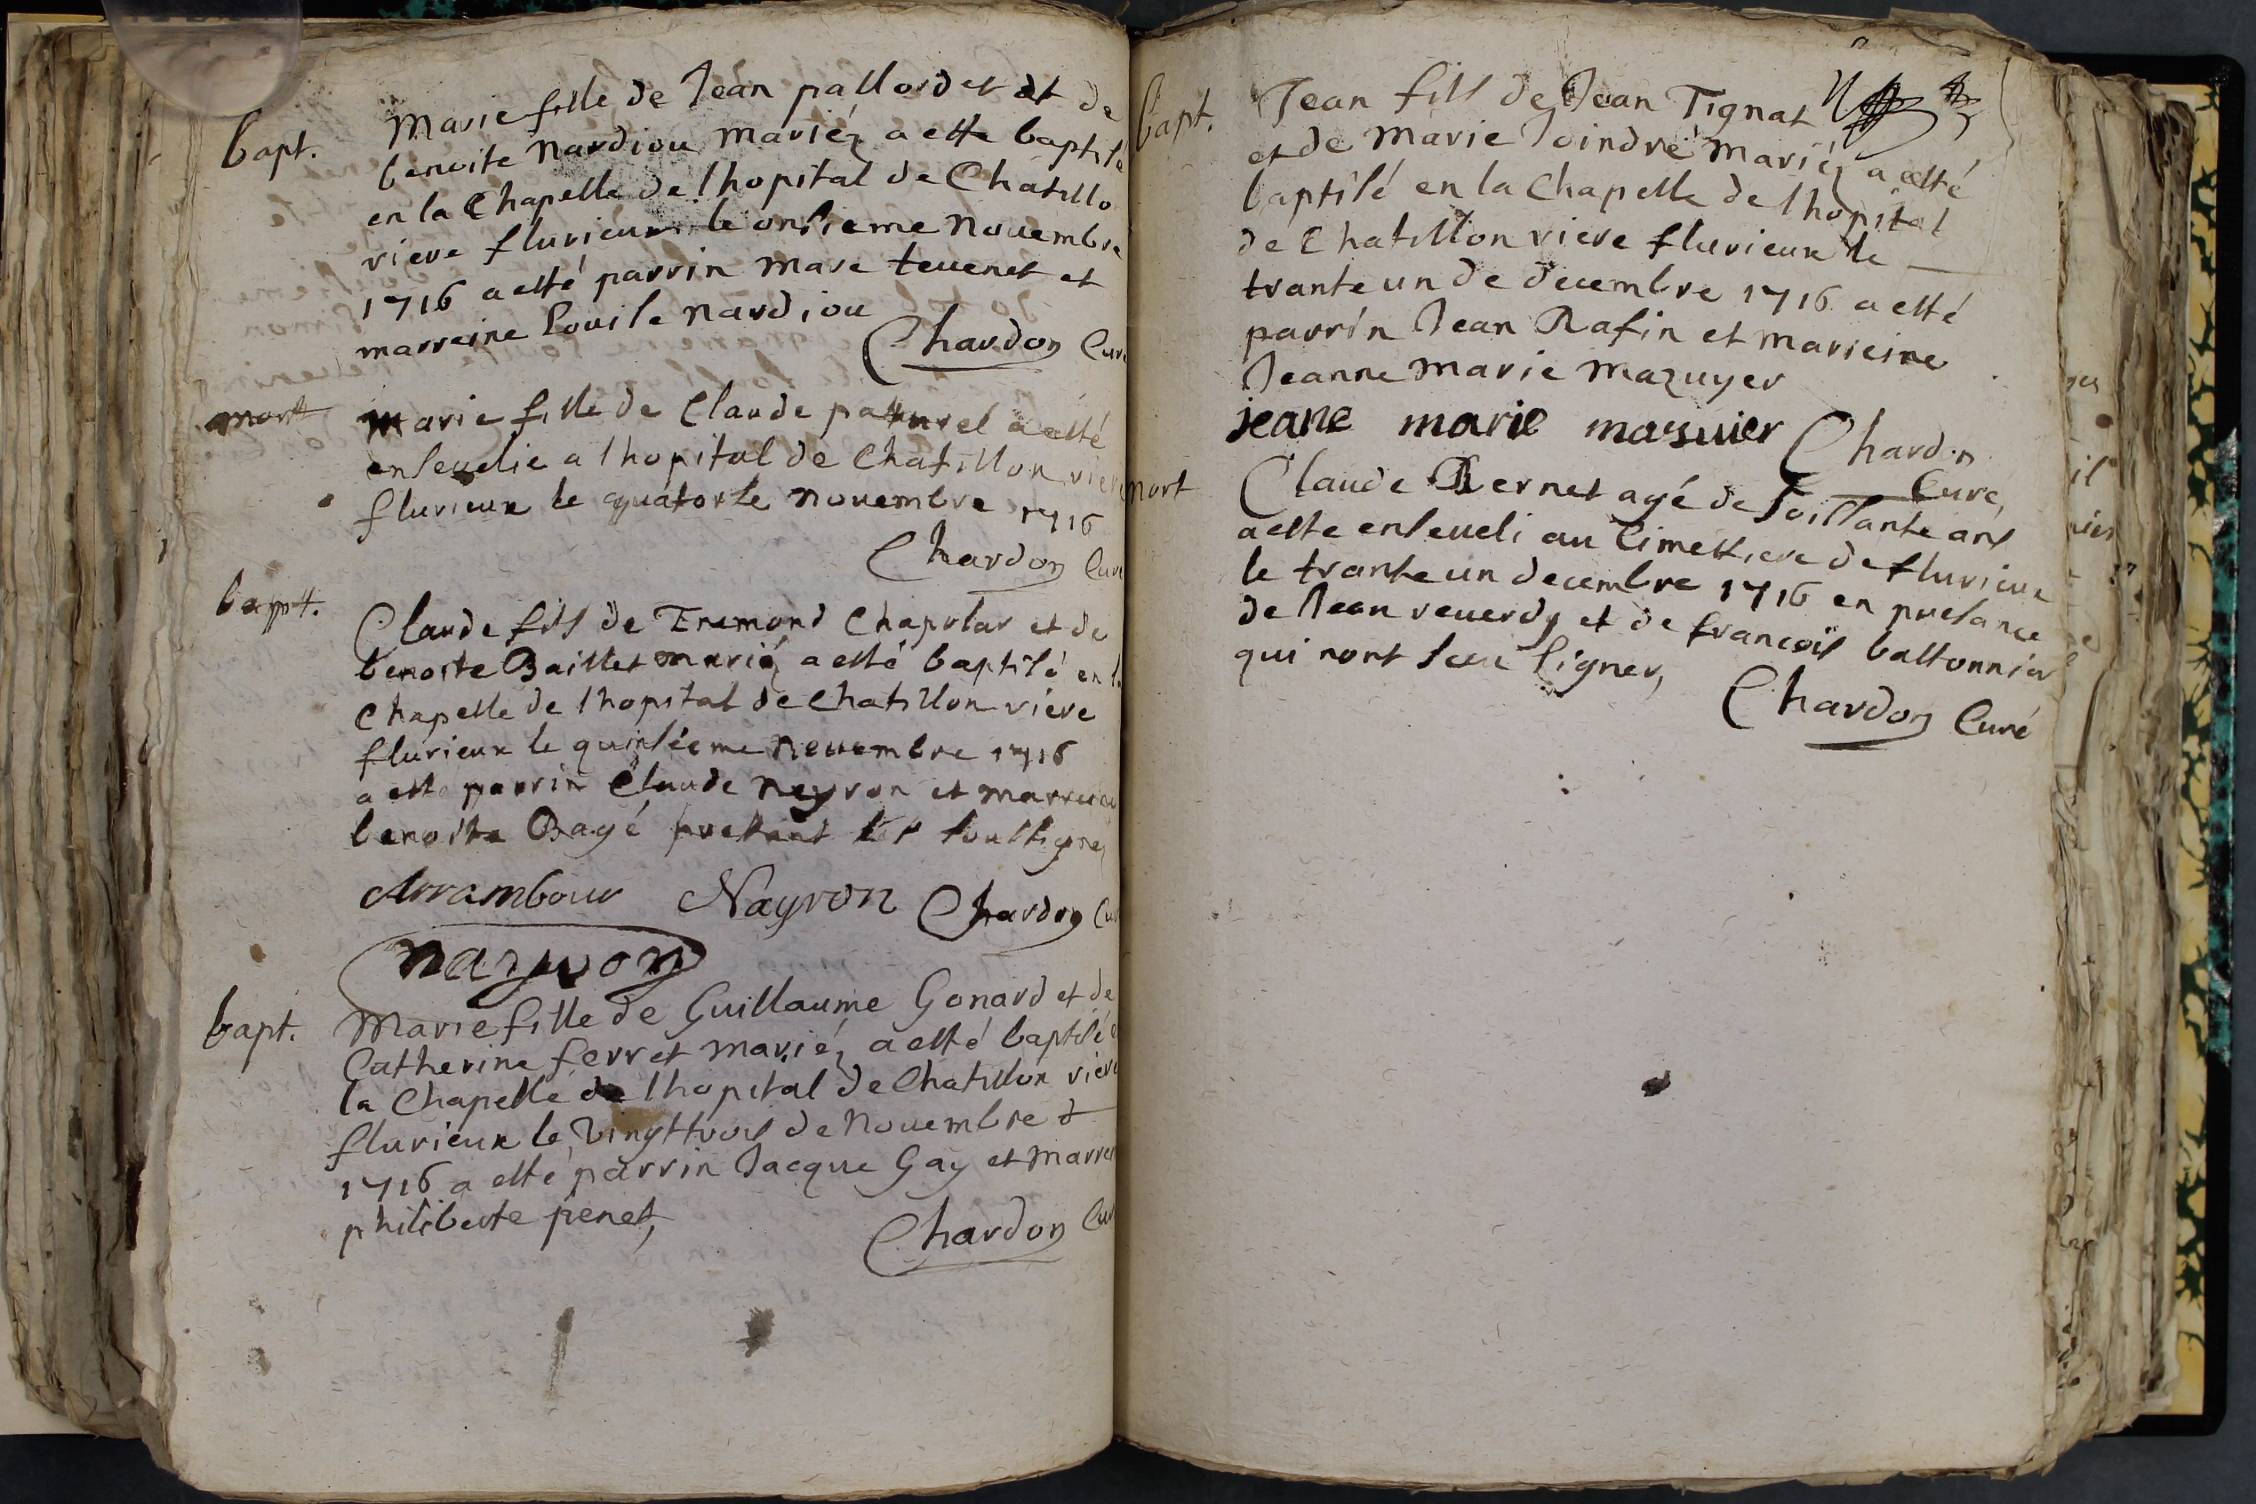 bapt.
Marie fille de Jean pallordet et de
benoite Nardiou mariéz a esté baptisé
en la Chapelle de lhopital de Chatillo
riere flurieux le onsieme Nouembre
1716 a esté parrin Marc teuenet et
marreine Louise nardiou
Chardon Curé
mort
Marie fille de Claude paturel a esté
enseuelie a lhopital de Chatillon riere
flurieux le quatorse nouembre 1716
Chardon Curé
bapt.
Claude fils de Enemond Chapolar et de
benoite Baillet mariéz a esté baptisé en la
Chapelle de lhopital de Chatillon riere
flurieux le quinsiéme Nouembre 1716
a esté parrin Claude Neyron et marreine
benoite Bagé presant les soussignez
Arrambour Nayron Chardon Curé
nazuvon
bapt.
Marie fille de Guillaume Gonard et de
Catherine ferret mariéz a esté baptisé e
la Chapelle de lhopital de Chatillon riere
flurieux le vingttrois de Nouembre
1716 a esté parrin Jacque Gay et marrei
philiberte penet,
Chardon Curé
bapt.
Jean fils de Jean Tignat
et de Marie Joindre mariéz a esté
baptisé en la Chapelle de lhopital
de Chatillon riere flurieux le
trante un de decembre 1716 a esté
parrin Jean Rafin et marieine
Jeanne Marie Mazuyer
jeane marie masuier Chardon
Curé,
mort
Claude Bernet agé de soissante ans
a este enseueli au Cimettiere de flurieux
le trante un decembre 1716 en presance
de Jean reuerdy et de francois bastonnier
qui nont sceu signer,
Chardon Curé